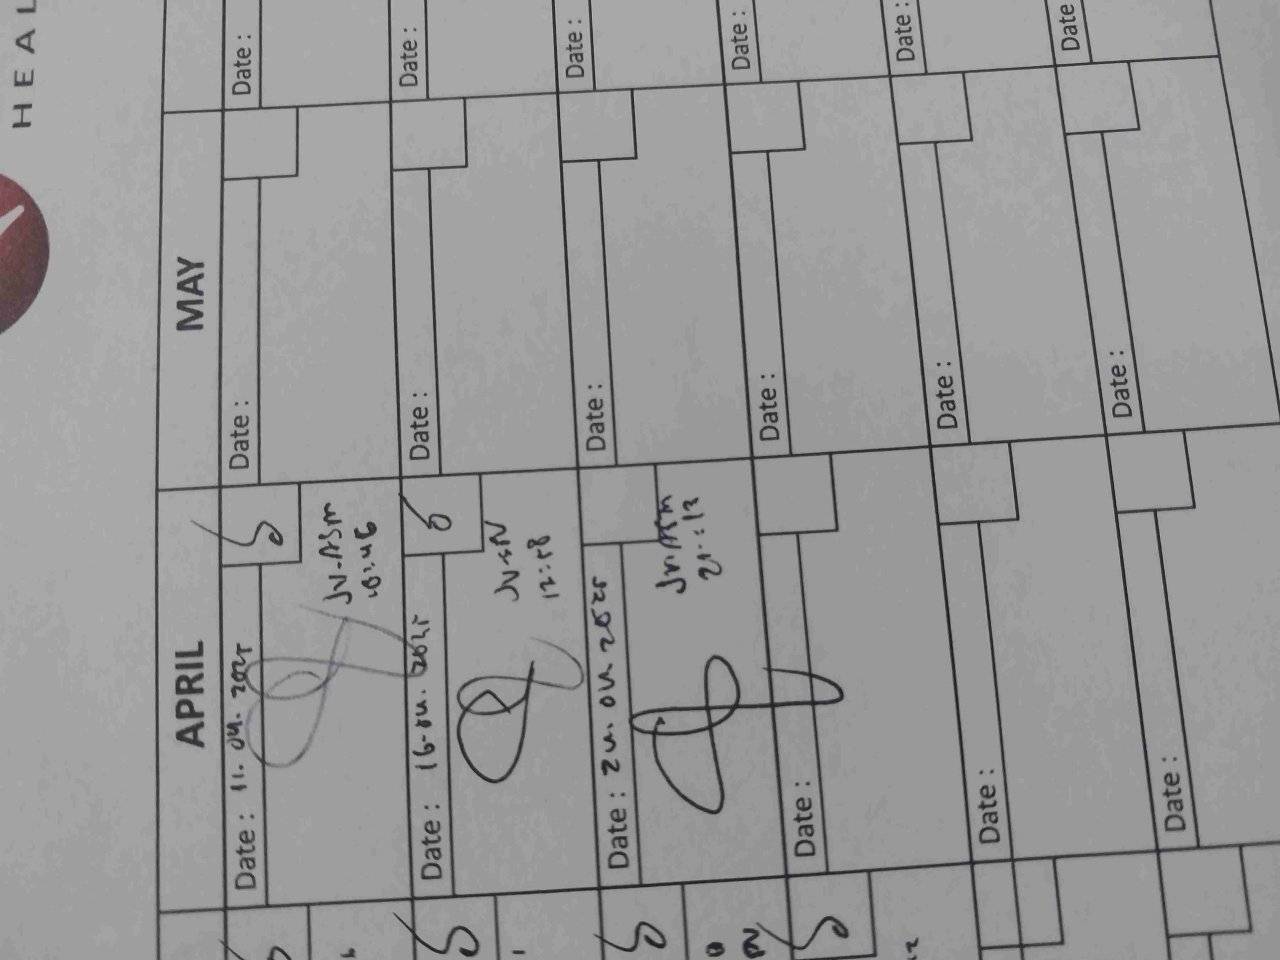 HEAL
APRIL
MAY
Date : 11. 04. 2025
Date :
Date :
JV-ASM
Date : 16-04. 2025
Date :
Date :
12:58
Date : 24. 04 2025
Date :
Date :
21::13
Date :
Date :
Date :
Date :
Date :
Date :
Date :
Date :
Date